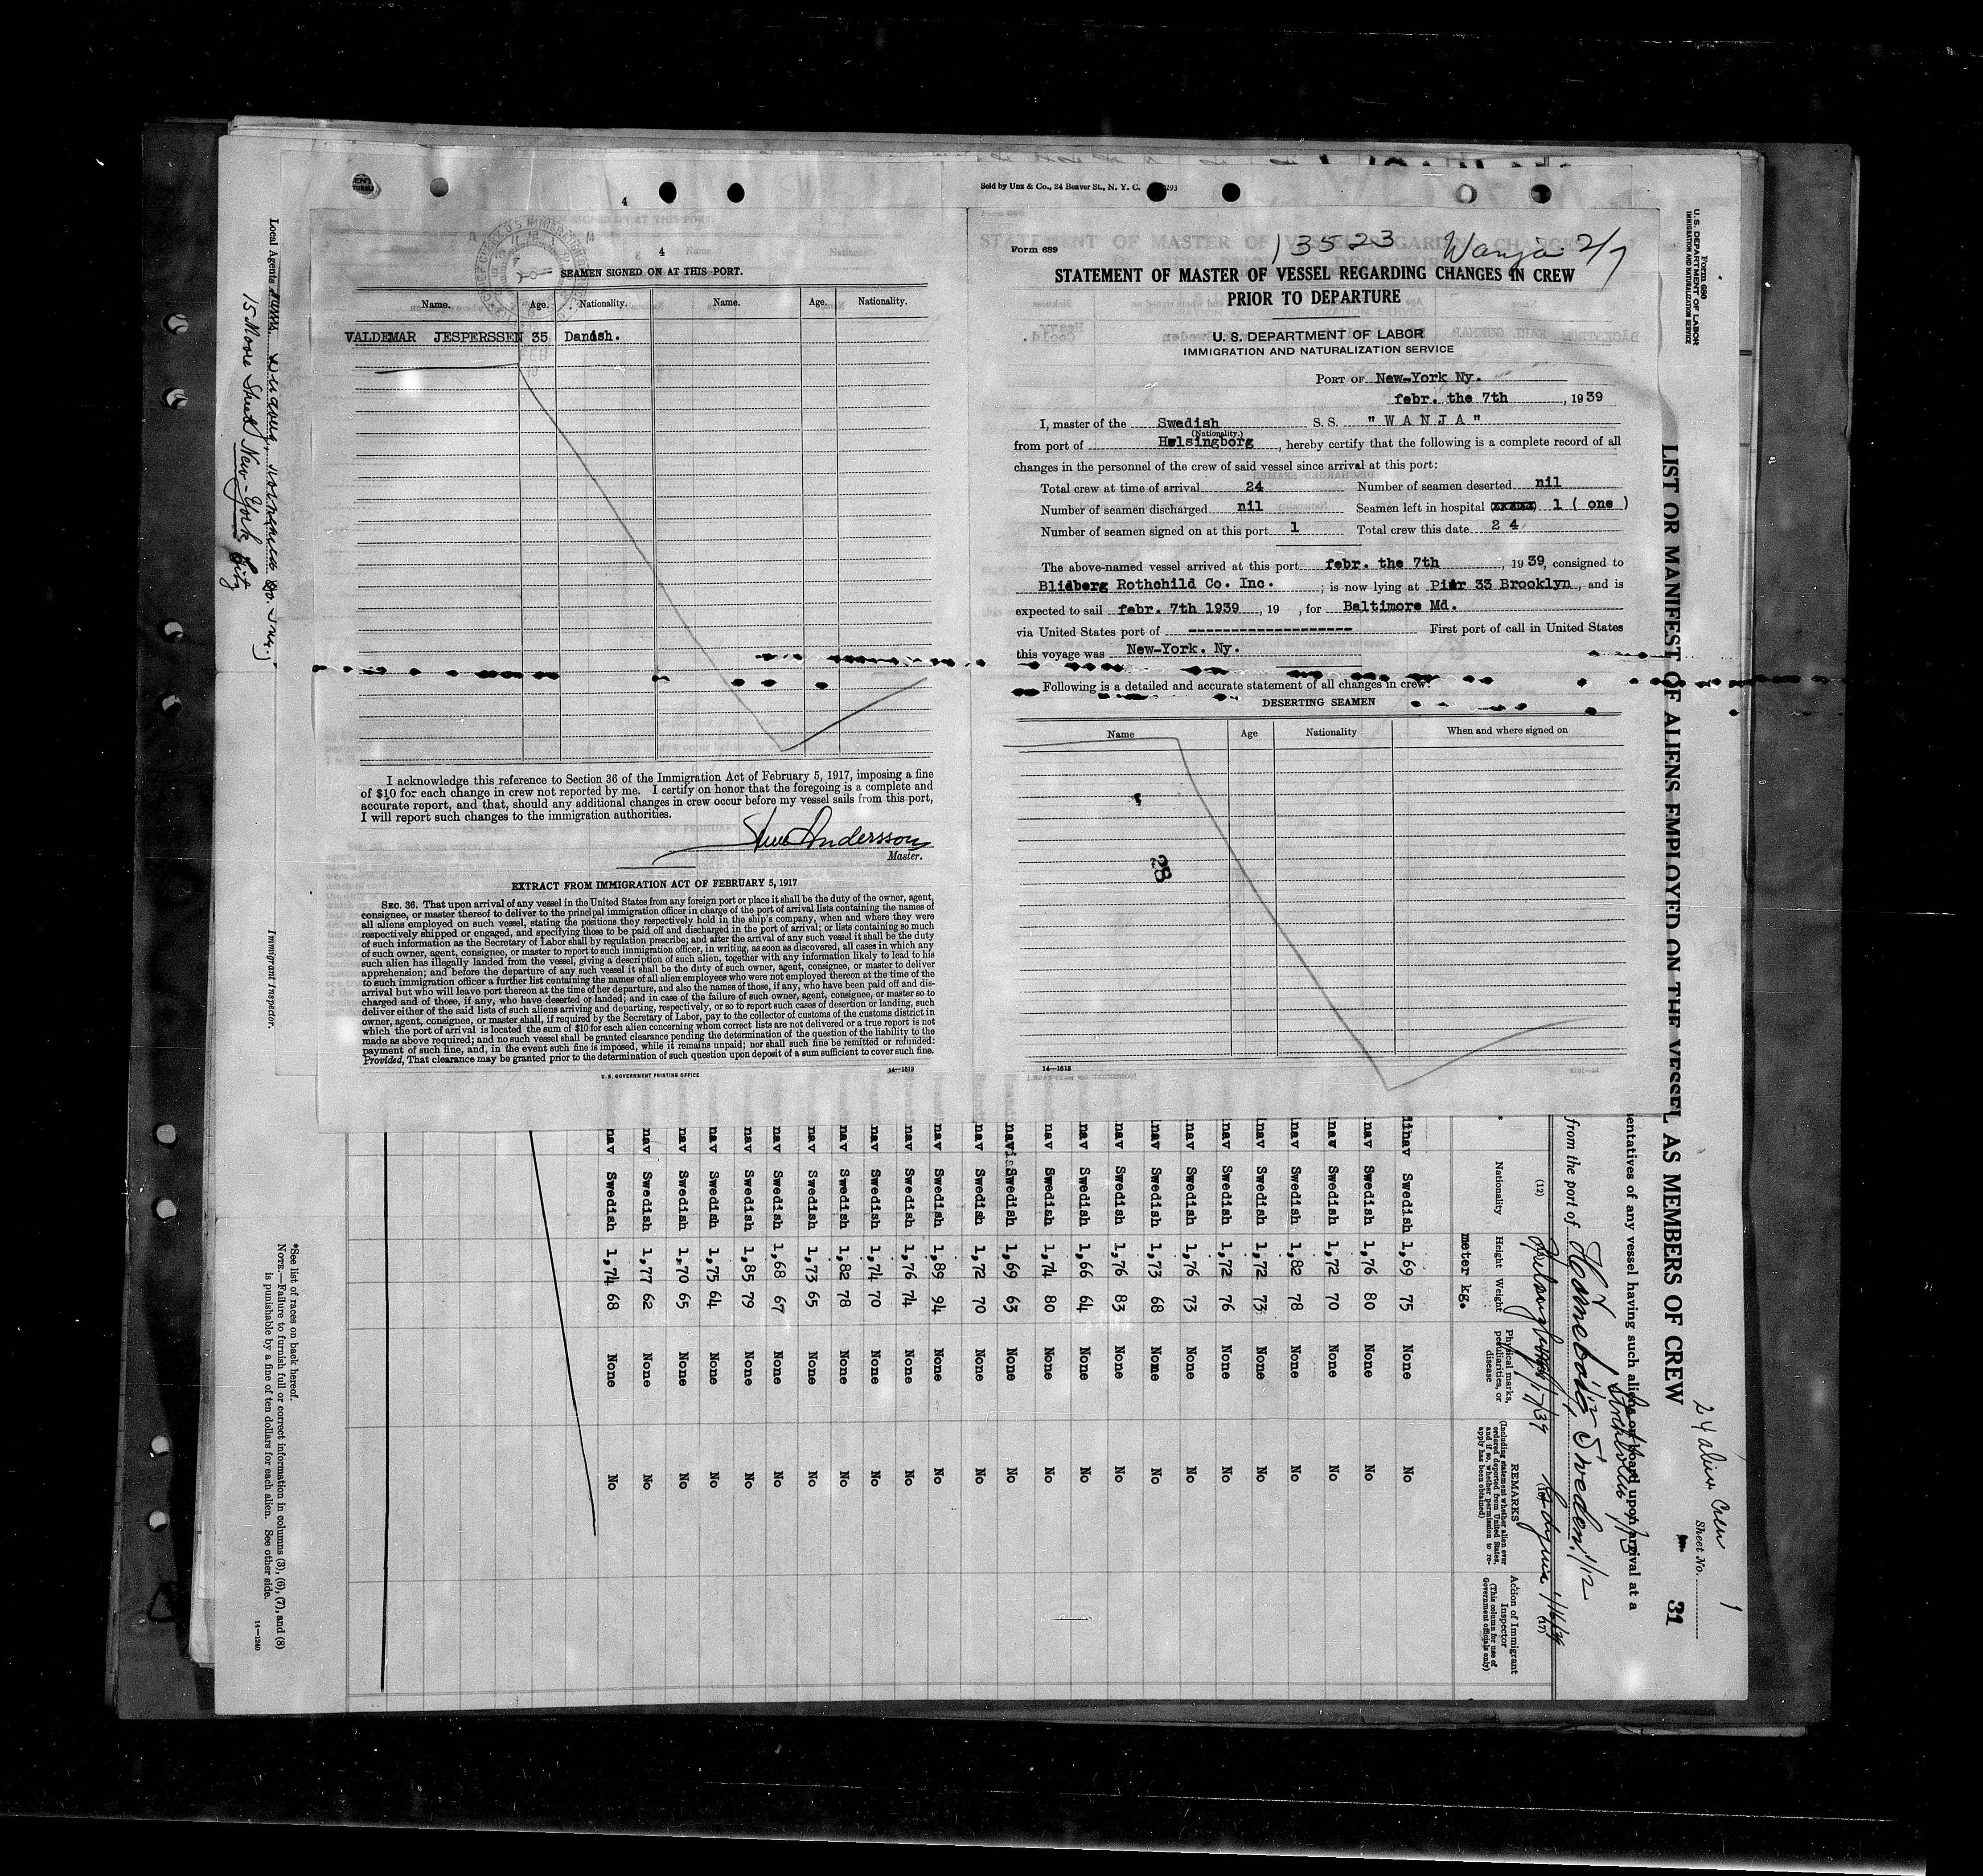 Sold by Unz & Co., 24 Beaver St., N. Y. C.
4
4
SEAMEN SIGNED ON AT THIS PORT.
Name. Age. Nationality. Name. Age. Nationality.
VALDEMAR JESPERSSEN 35 Danish.
I acknowledge this reference to Section 36 of the Immigration Act of February 5, 1917, imposing a fine
of $10 for each change in crew not reported by me. I certify on honor that the foregoing is a complete and
accurate report, and that, should any additional changes in crew occur before my vessel sails from this port,
I will report such changes to the immigration authorities.
Andersson
Master.
EXTRACT FROM IMMIGRATION ACT OF FEBRUARY 5, 1917
SEC. 36. That upon arrival of any vessel in the United States from any foreign port or place it shall be the duty of the owner, agent,
consignee, or master thereof to deliver to the principal immigration officer in charge of the port of arrival lists containing the names of
all aliens employed on such vessel, stating the positions they respectively hold in the ship's company, when and where they were
respectively shipped or engaged, and specifying those to be paid off and discharged in the port of arrival; or lists containing so much
of such information as the Secretary of Labor shall by regulation prescribe; and after the arrival of any such vessel it shall be the duty
of such owner, agent, consignee, or master to report to such immigration officer, in writing, as soon as discovered, all cases in which any
such alien has illegally landed from the vessel, giving a description of such alien, together with any information likely to lead to his
apprehension; and before the departure of any such vessel it shall be the duty of such owner, agent, consignee, or master to deliver
to such immigration officer a further list containing the names of all alien employees who were not employed thereon at the time of the
arrival but who will leave port thereon at the time of her departure, and also the names of those, if any, who have been paid off and dis-
charged and of those, if any, who have deserted or landed; and in case of the failure of such owner, agent, consignee, or master so to
deliver either of the said lists of such aliens arriving and departing, respectively, or so to report such cases of desertion or landing, such
owner, agent, consignee, or master shall, if required by the Secretary of Labor, pay to the collector of customs of the customs district in
which the port of arrival is located the sum of $10 for each alien concerning whom correct lists are not delivered or a true report is not
made as above required; and no such vessel shall be granted clearance pending the determination of the question of the liability to the
payment of such fine, and, in the event such fine is imposed, while it remains unpaid; nor shall such fine be remitted or refunded:
Provided, That clearance may be granted prior to the determination of such question upon deposit of a sum sufficient to cover such fine.
U. S. GOVERNMENT PRINTING OFFICE 14—1513
Form 689
13523 Wanja 2/7
STATEMENT OF MASTER OF VESSEL REGARDING CHANGES IN CREW
PRIOR TO DEPARTURE
U. S. DEPARTMENT OF LABOR
IMMIGRATION AND NATURALIZATION SERVICE
PORT OF New-York Ny.
febr. the 7th, 1939
I, master of the Swedish S. S. "WANJA"
(Nationality.)
from port of Helsingborg, hereby certify that the following is a complete record of all
changes in the personnel of the crew of said vessel since arrival at this port:
Total crew at time of arrival 24 Number of seamen deserted nil
Number of seamen discharged nil Seamen left in hospital 1 ( one )
Number of seamen signed on at this port 1 Total crew this date 24
The above-named vessel arrived at this port febr. the 7th, 1939, consigned to
Blidberg Rothchild Co. Inc.; is now lying at Pier 33 Brooklyn, and is
expected to sail febr. 7th 1939, 19 , for Baltimore Md.
via United States port of -------------------- First port of call in United States
this voyage was New-York. Ny.
Following is a detailed and accurate statement of all changes in crew:
DESERTING SEAMEN
Name Age Nationality When and where signed on
28
14—1513
Form 680
U. S. DEPARTMENT OF LABOR
IMMIGRATION AND NATURALIZATION SERVICE
24 alien Crew
Sheet No. 1
LIST OR MANIFEST OF ALIENS EMPLOYED ON THE VESSEL AS MEMBERS OF CREW
31
entatives of any vessel having such aliens on board upon arrival at a
from the port of Sweden 1/12
(12) (17)
Nationality Height Weight Physical marks, peculiarities, or disease REMARKS (Including statement whether alien ever ordered deported from United States, and if so, whether permission to re-apply has been obtained) Action of Immigrant Inspector (This column for use of Government officials only)
meter kg.
Swedish 1,69 75 None No
nav Swedish 1,76 80 None No
nav Swedish 1,72 70 None No
nav Swedish 1,82 78 None No
nav Swedish 1,72 73 None No
nav Swedish 1,72 76 None No
nav Swedish 1,76 73 None No
nav Swedish 1,73 68 None No
nav Swedish 1,76 83 None No
nav Swedish 1,66 64 None No
nav Swedish 1,74 80 None No
nav Swedish 1,69 63 None No
nav Swedish 1,72 70 None No
nav Swedish 1,89 94 None No
nav Swedish 1,76 74 None No
nav Swedish 1,74 70 None No
nav Swedish 1,82 78 None No
nav Swedish 1,73 65 None No
nav Swedish 1,68 67 None No
nav Swedish 1,85 79 None No
nav Swedish 1,75 64 None No
nav Swedish 1,70 65 None No
nav Swedish 1,77 62 None No
nav Swedish 1,74 68 None No
*See list of races on back hereof.
NOTE.—Failure to furnish full or correct information in columns (3), (6), (7), and (8)
is punishable by a fine of ten dollars for each alien. See other side.
14—1240
Immigrant Inspector.
Local Agents
15 Moore Street New-York City